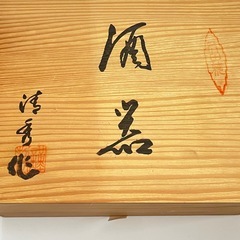 酒器
清秀作